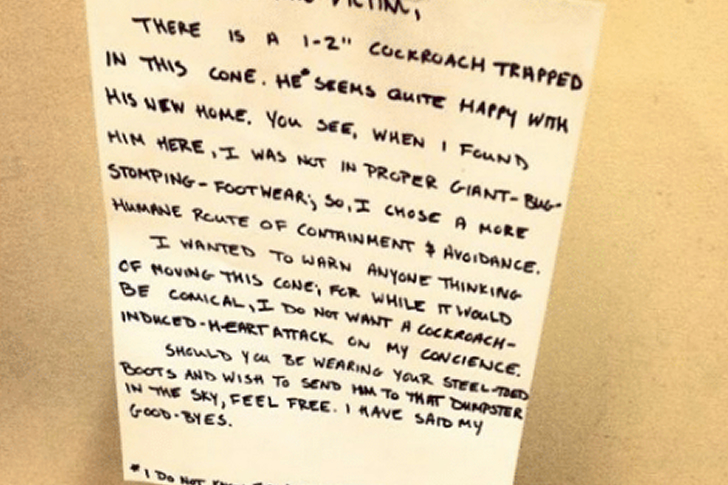 VICTIM,
THERE IS A 1-2" COCKROACH TRAPPED
IN THIS CONE. HE* SEEMS QUITE HAPPY WITH
HIS NEW HOME. YOU SEE, WHEN I FOUND
HIM HERE, I WAS NOT IN PROPER GIANT-BUG-
STOMPING-FOOTWEAR; SO, I CHOSE A MORE
HUMANE ROUTE OF CONTAINMENT & AVOIDANCE.
I WANTED TO WARN ANYONE THINKING
OF MOVING THIS CONE; FOR WHILE IT WOULD
BE COMICAL, I DO NOT WANT A COCKROACH-
INDUCED-HEART ATTACK ON MY CONCIENCE.
SHOULD YOU BE WEARING YOUR STEEL-TOED
BOOTS AND WISH TO SEND HIM TO THAT DUMPSTER
IN THE SKY, FEEL FREE. I HAVE SAID MY
GOOD-BYES.
* I DO NOT